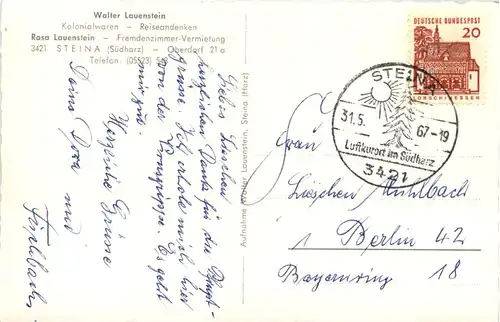 Walter Lauenstein
Kolonialwaren – Reiseandenken
Rosa Lauenstein – Fremdenzimmer-Vermietung
3421 STEINA (Südharz) – Oberdorf 21 a
Telefon: (05523)
Liebes Lieschen!
herzlichen Dank für die Pfingst-
grüsse. Ich erhole mich hier
von der Kampfgrippe. Es geht
mir gut.
Herzliche Grüsse
Deine Dora und
Aufnahme Walter Lauenstein, Steina (Harz)
DEUTSCHE BUNDESPOST
20
LORSCH/HESSEN
STEINA
31.5. 67-19
Luftkurort im Südharz
3421
Frau
Lieschen Mühlbach
1 Berlin 42
Bayernring 18